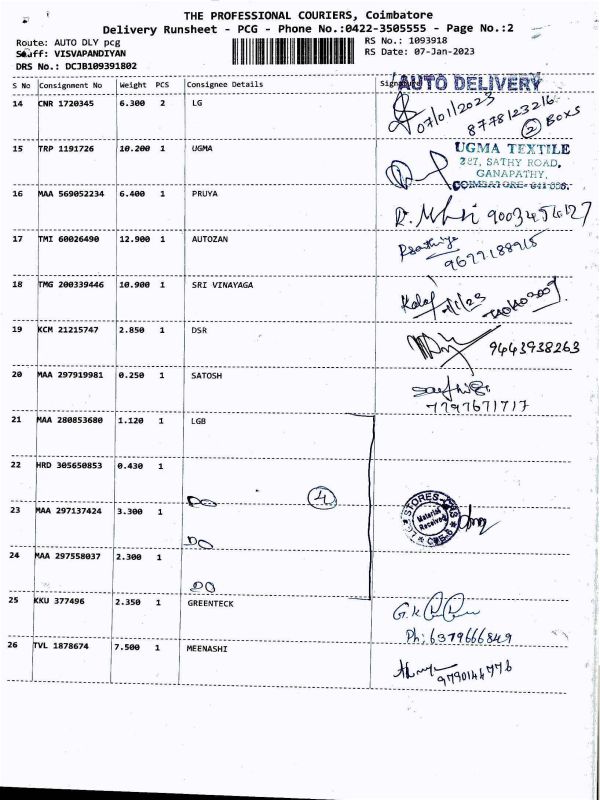 THE PROFESSIONAL COURIERS, Coimbatore
Delivery Runsheet - PCG - Phone No.:0422-3505555 - Page No.:2
Route: AUTO DLY pcg
RS No.: 1093918
Staff: VISVAPANDIYAN
RS Date: 07-Jan-2023
DRS No.: DCJB109391802
S No Consignment No Weight PCS Consignee Details Signature
AUTO DELIVERY
14 CNR 1720345 6.300 2 LG
07/01/2023
8778123216
2 BOXS
15 TRP 1191726 10.200 1 UGMA
UGMA TEXTILE
287, SATHY ROAD,
GANAPATHY,
COIMBATORE-641 006.
16 MAA 569052234 6.400 1 PRUYA
17 TMI 60026490 12.900 1 AUTOZAN
9677188915
18 TMG 200339446 10.900 1 SRI VINAYAGA
19 KCM 21215747 2.850 1 DSR
9443938263
20 MAA 297919981 0.250 1 SATOSH
21 MAA 280853680 1.120 1 LGB
22 HRD 305650853 0.430 1
4
DO
23 MAA 297137424 3.300 1
STORES
Material
Received
DO
24 MAA 297558037 2.300 1
DO
25 KKU 377496 2.350 1 GREENTECK
Ph: 6379666849
26 TVL 1878674 7.500 1 MEENASHI
9790144776